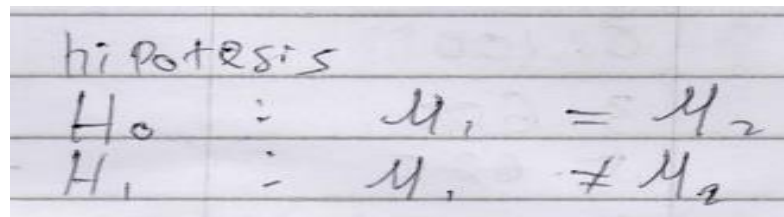 hipotesis
H₀ : μ₁ = μ₂
H₁ : μ₁ ≠ μ₂